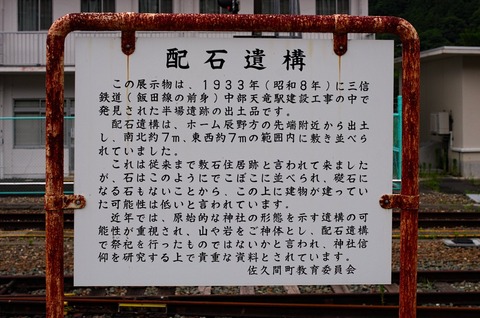 配石遺構
この展示物は、1933年(昭和8年)に三信
鉄道(飯田線の前身)中部天竜駅建設工事の中で
発見された半場遺跡の出土品です。
配石遺構は、ホーム辰野方の先端附近から出土
し、南北約7m、東西約7mの範囲内に敷き並べら
れていました。
これは従来まで敷石住居跡と言われて来ました
が、石はこのようにでこぼこに並べられ、礎石に
なる石もないことから、この上に建物が建ってい
た可能性は低いと言われています。
近年では、原始的な神社の形態を示す遺構の可
能性が重視され、山や岩をご神体とし、配石遺構
で祭祀を行ったものではないかと言われ、神社信
仰を研究する上で貴重な資料とされています。
佐久間町教育委員会